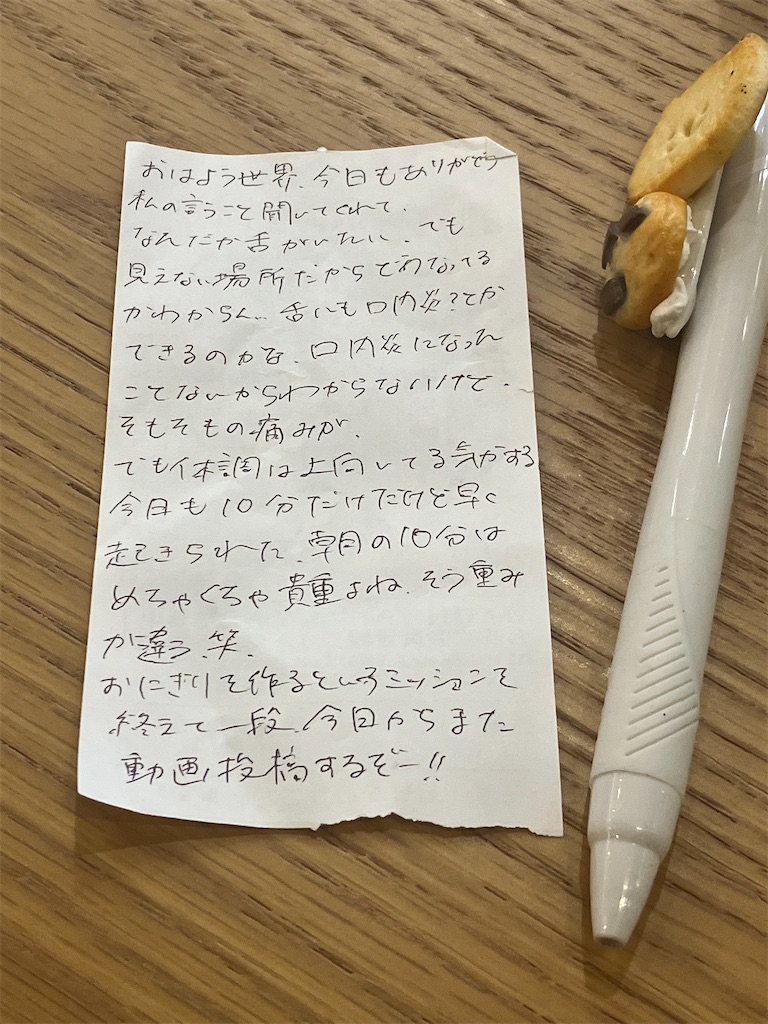 おはよう世界、今日もありがとう
私の言うこと聞いてくれて。
なんだか舌がいたい、でも
見えない場所だからどうなってる
かわからん。舌にも口内炎?とか
できるのかな、口内炎になった
ことないからわからないけど。
そもそもの痛みが、
でも体調は上向いてる気がする
今日も10分だけだけど早く
起きられた、朝の10分は
めちゃくちゃ貴重よね、そう重み
が違う、笑、
おにぎりを作るというミッションを
終えて一段、今日からまた
動画投稿するぞー!!